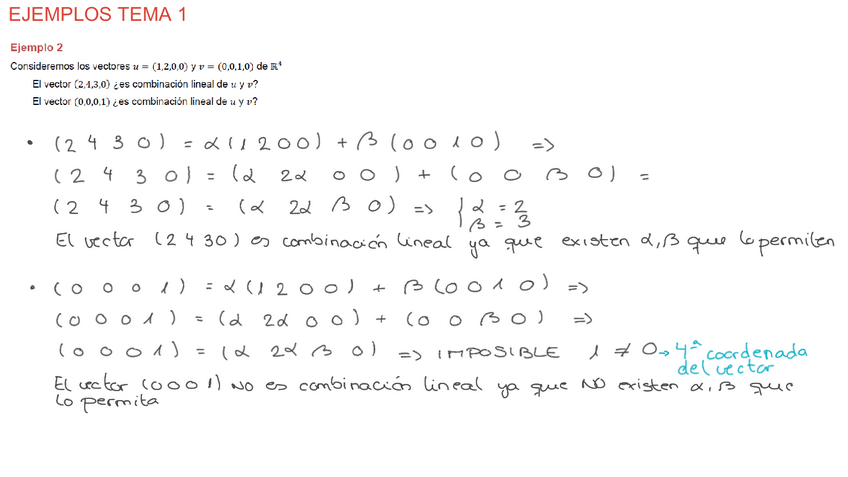 EJEMPLOS TEMA 1
Ejemplo 2
Consideremos los vectores u = (1,2,0,0) y v = (0,0,1,0) de ℝ⁴
El vector (2,4,3,0) ¿es combinación lineal de u y v?
El vector (0,0,0,1) ¿es combinación lineal de u y v?
• (2 4 3 0) = α(1 2 0 0) + β(0 0 1 0) =>
(2 4 3 0) = (α 2α 0 0) + (0 0 β 0) =
(2 4 3 0) = (α 2α β 0) => { α = 2
β = 3
El vector (2 4 3 0) es combinación lineal ya que existen α, β que lo permiten
• (0 0 0 1) = α(1 2 0 0) + β(0 0 1 0) =>
(0 0 0 1) = (α 2α 0 0) + (0 0 β 0) =>
(0 0 0 1) = (α 2α β 0) => IMPOSIBLE 1 ≠ 0 → 4ª coordenada
del vector
El vector (0 0 0 1) NO es combinación lineal ya que NO existen α, β que
lo permita